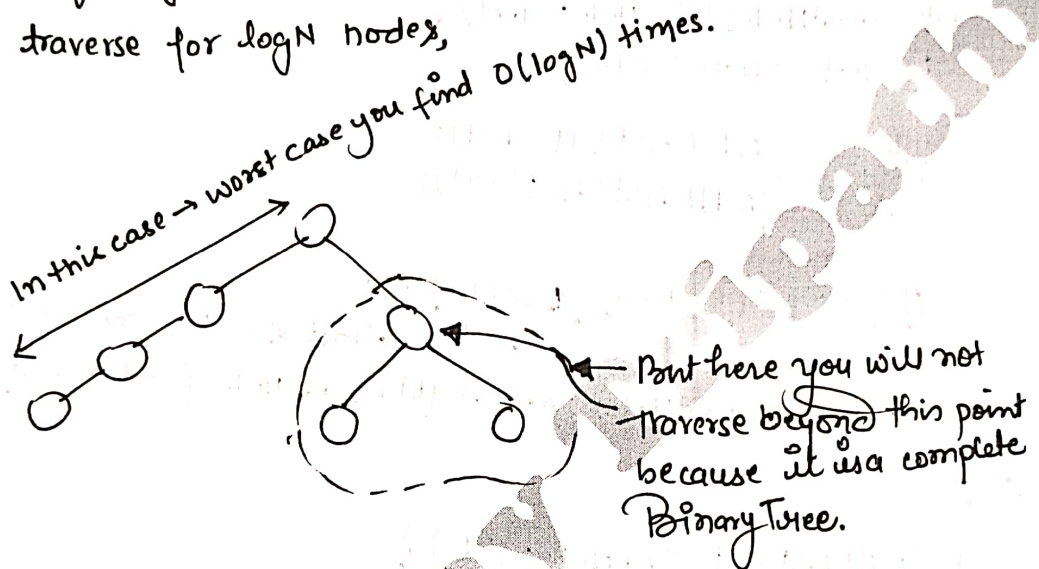 traverse for logN nodes,
In this case → worst case you find O(logN) times.
But here you will not
traverse beyond this point
because it is a complete
Binary Tree.